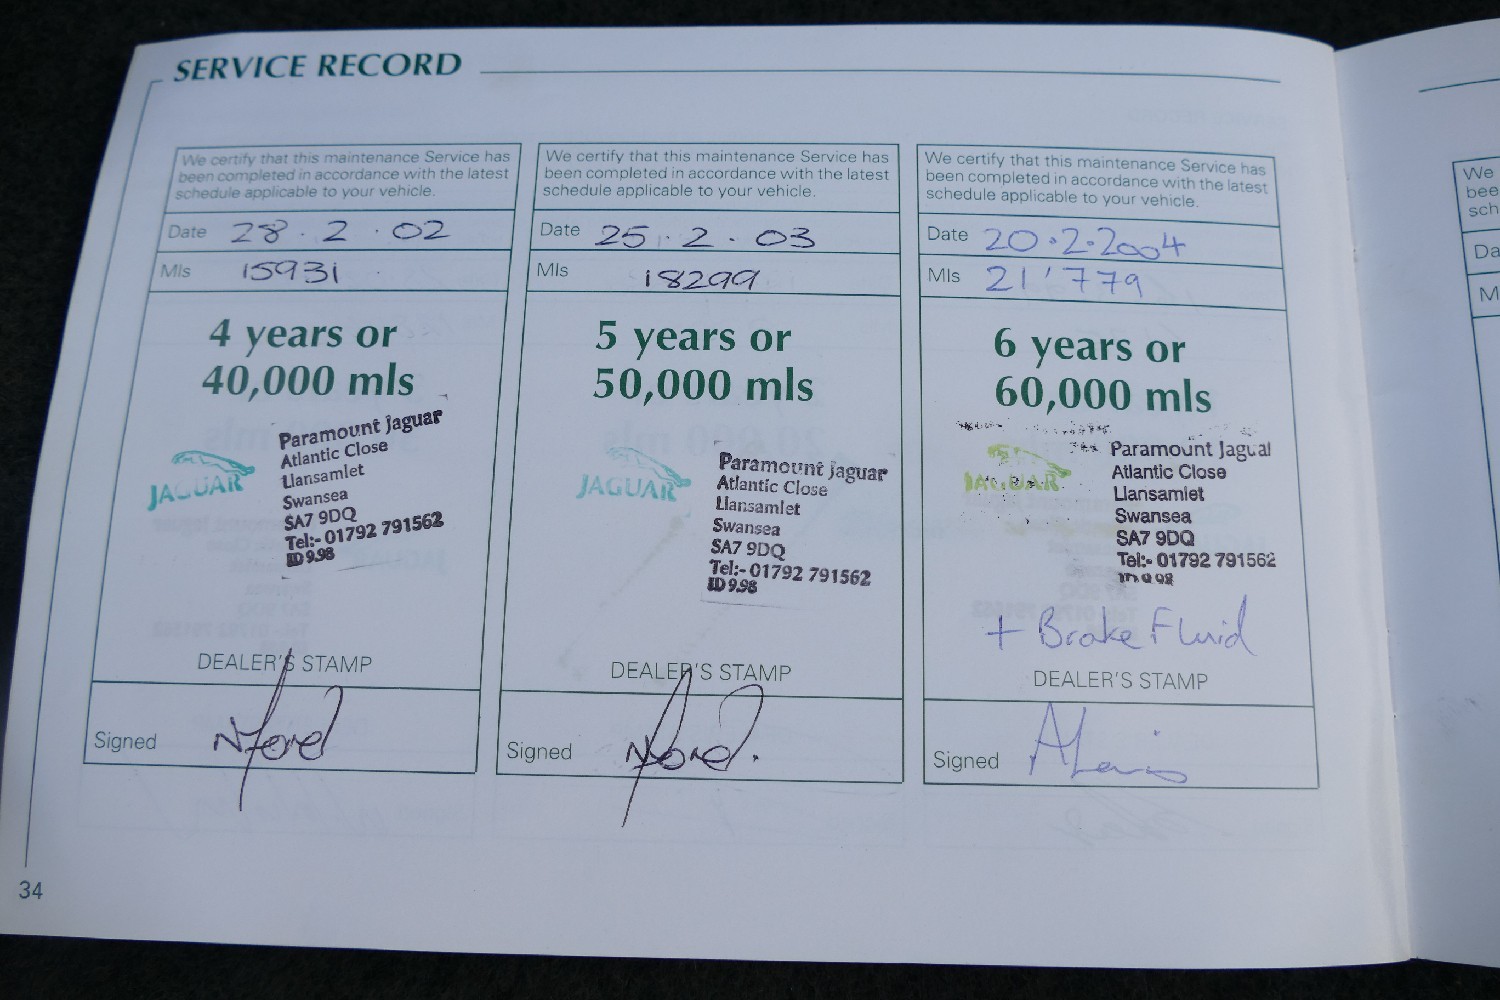 SERVICE RECORD
We certify that this maintenance Service has
been completed in accordance with the latest
schedule applicable to your vehicle.
Date 28 . 2 . 02
Mls 15931
4 years or
40,000 mls
JAGUAR
Paramount Jaguar
Atlantic Close
Llansamlet
Swansea
SA7 9DQ
Tel:- 01792 791562
ID 9.98
DEALER'S STAMP
Signed NFord
We certify that this maintenance Service has
been completed in accordance with the latest
schedule applicable to your vehicle.
Date 25 . 2 . 03
Mls 18299
5 years or
50,000 mls
JAGUAR
Paramount Jaguar
Atlantic Close
Llansamlet
Swansea
SA7 9DQ
Tel:- 01792 791562
ID 9.98
DEALER'S STAMP
Signed NFord.
We certify that this maintenance Service has
been completed in accordance with the latest
schedule applicable to your vehicle.
Date 20.2.2004
Mls 21'779
6 years or
60,000 mls
JAGUAR
Paramount Jaguar
Atlantic Close
Llansamlet
Swansea
SA7 9DQ
Tel:- 01792 791562
+ Brake Fluid
DEALER'S STAMP
Signed
34
We